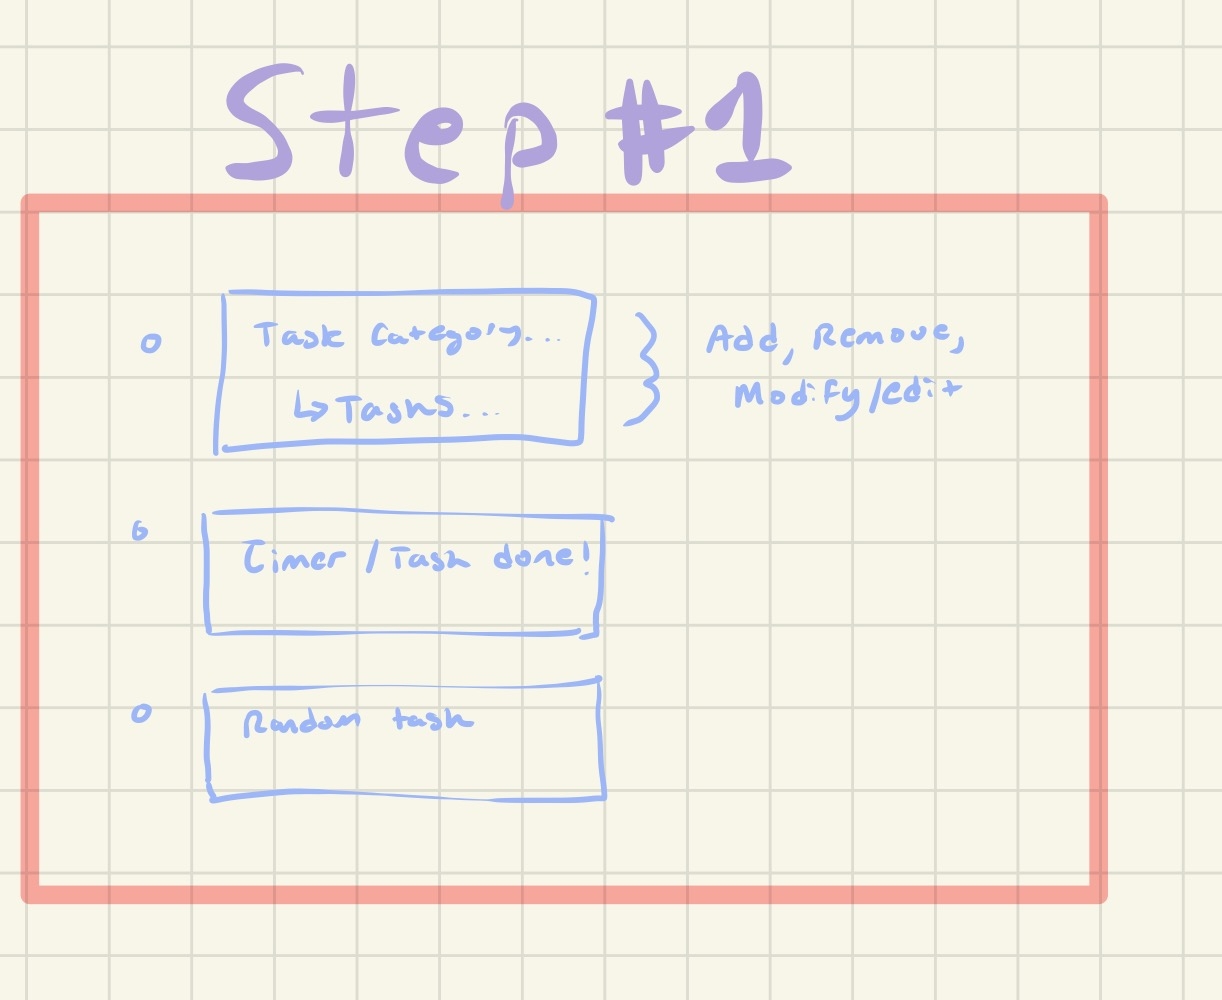 Step #1
Task Category...
↳ Tasks...
Add, Remove,
Modify/edit
Timer / Task done!
Random task